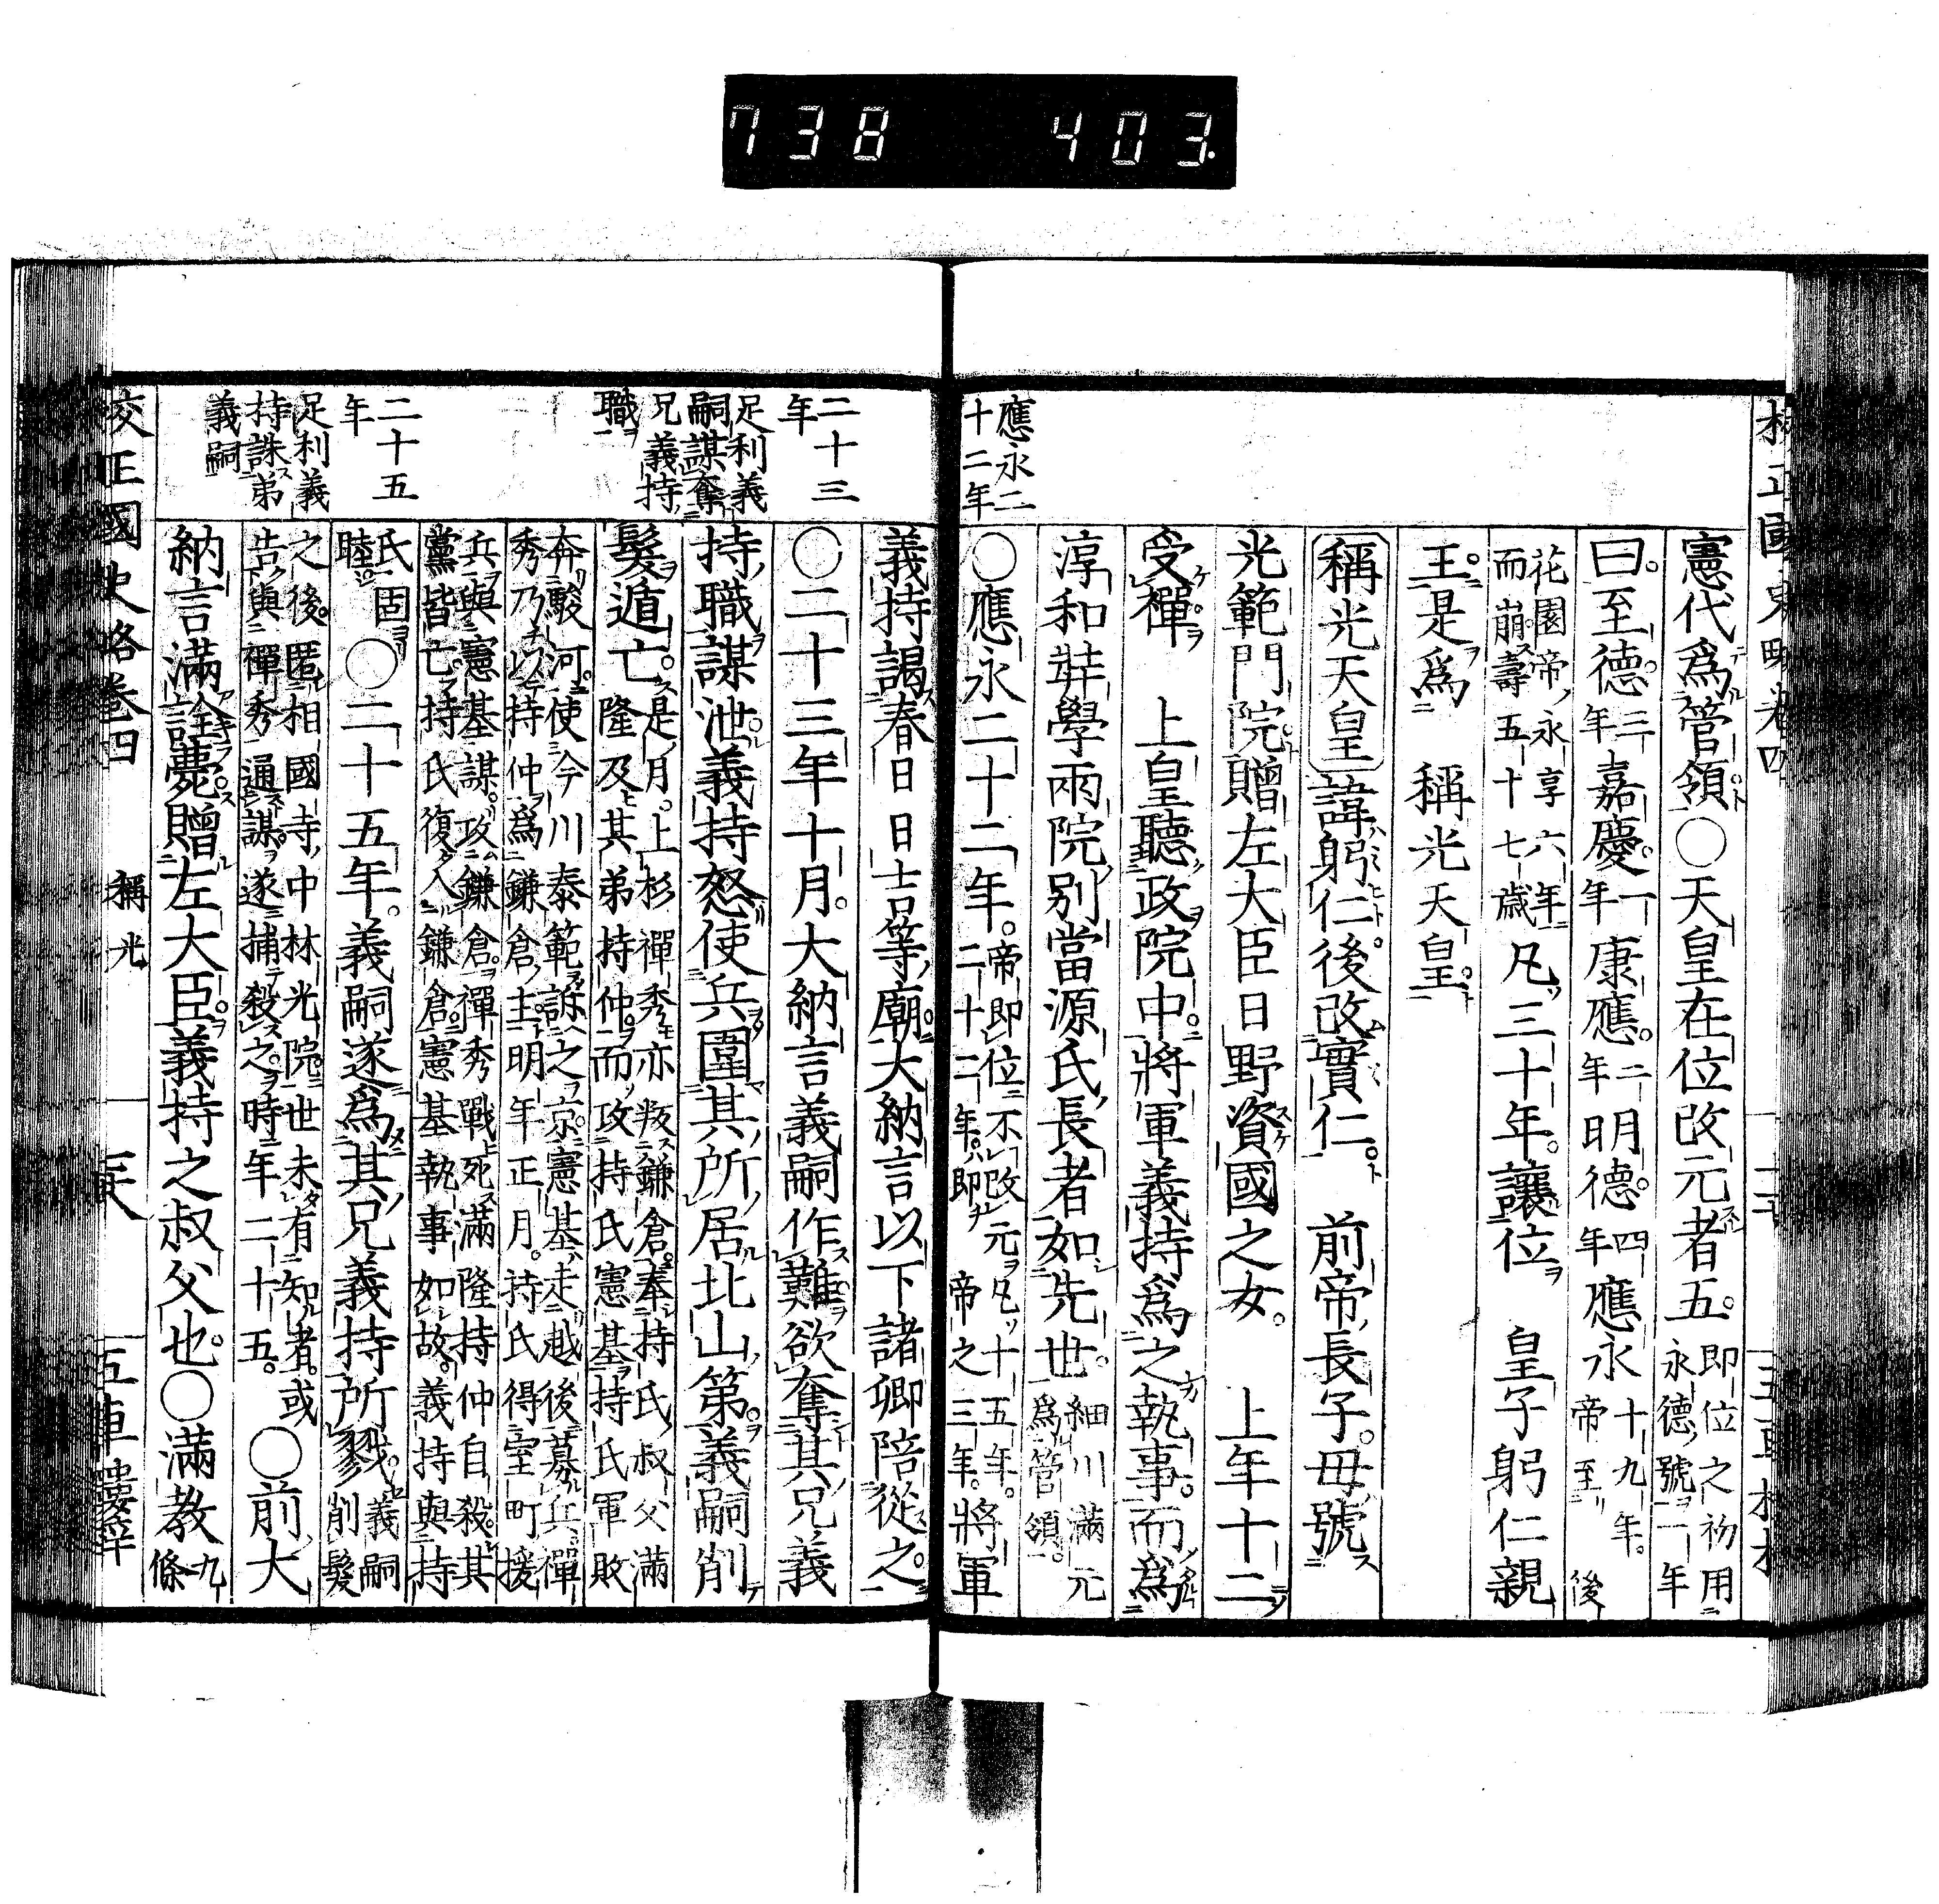 738 403.
憲代爲管領○天皇在位改元者五即位之初用永德號一年
曰至德三年嘉慶二年康應一年明德四年應永十九年帝至後
花園帝永享六年而崩壽五十七歲凡三十年讓位 皇子躬仁親
王是爲 稱光天皇
稱光天皇諱躬仁後改實仁 前帝長子母號
光範門院贈左大臣日野資國之女 上年十二
受禪 上皇聽政院中將軍義持爲之執事而爲
淳和弉學兩院別當源氏長者如先世細川滿元爲管領
應永二十二年
○應永二十二年帝即位不改元凡十五年二十二年即帝之三年將軍
義持謁春日日吉等廟大納言以下諸卿陪從之
二十三年
○二十三年十月大納言義嗣作難欲奪其兄義
足利義嗣謀奪兄義持職
持職謀泄義持怒使兵圍其所居北山第義嗣削
髮遁亡是月上杉禪秀亦叛鎌倉奉持氏叔父滿隆及其弟持仲而攻持氏憲基持氏軍敗
奔駿河使今川泰範訴之京憲基走越後募兵禪秀乃以持仲爲鎌倉主明年正月持氏得室町援
兵與憲基謀攻鎌倉禪秀戰死滿隆持仲自殺其黨皆亡持氏復入鎌倉憲基執事如故義持與持
二十五年
氏固睦○二十五年義嗣遂爲其兄義持所戮義嗣削髮
足利義持誅弟義嗣
之後匿相國寺中林光院世未有知者或告與禪秀通謀遂捕殺之時年二十五○前大
納言滿詮薨贈左大臣義持之叔父也○滿教九條
校正國史略卷四 稱光 五車樓梓